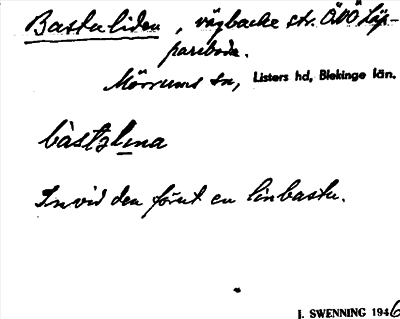 Bastuliden, vägbacke str. ÖNÖ Löp-
pareboda.
Mörrums sn, Listers hd, Blekinge län.
bàstəlina
Invid den förut en linbastu.
J. SWENNING 1946